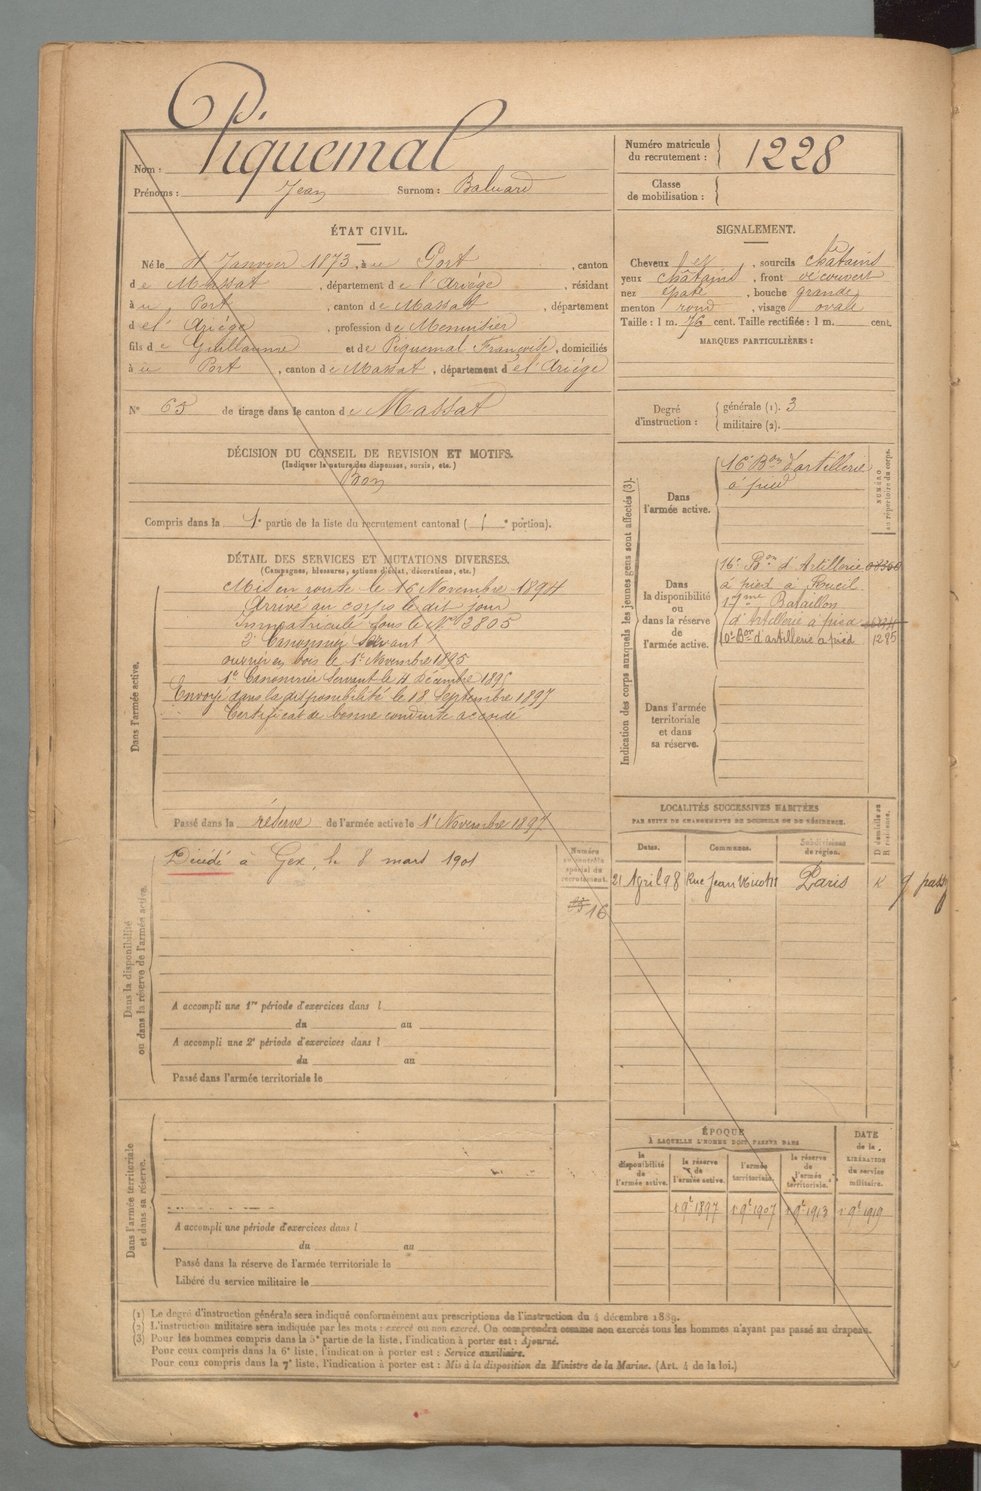 P.
Nom : Piquemal
Prénoms : Jean Surnom : Baluard
Numéro matricule du recrutement : 1228
Classe de mobilisation :
ÉTAT CIVIL.
Né le 4 Janvier 1873, à u Port, canton
de Massat, département de l'Ariège, résidant
à u Port, canton de Massat, département
de l'Ariège, profession de Menuisier
fils de Guillaume et de Piquemal Françoise, domiciliés
à u Port, canton de Massat, département de l'Ariège
N° 65 de tirage dans le canton de Massat
SIGNALEMENT.
Cheveux et, sourcils châtains
yeux châtains, front découvert
nez épaté, bouche grande
menton rond, visage ovale
Taille : 1 m. 76 cent. Taille rectifiée : 1 m. cent.
MARQUES PARTICULIÈRES :
Degré d'instruction : générale (1). 3
militaire (2).
DÉCISION DU CONSEIL DE REVISION ET MOTIFS.
(Indiquer la nature des dispenses, sursis, etc.)
Bon
Compris dans la 1e partie de la liste du recrutement cantonal ( 1 e portion).
DÉTAIL DES SERVICES ET MUTATIONS DIVERSES.
(Campagnes, blessures, actions d'éclat, décorations, etc.)
Dans l'armée active.
Mis en route le 16 Novembre 1894
Arrivé au corps le dit jour
Immatriculé sous le N° 2805
2e Canonnier servant
ouvrier en bois le 1er Novembre 1895
1er Canonnier servant le 4 décembre 1895
Envoyé dans la disponibilité le 18 Septembre 1897
Certificat de bonne conduite accordé
Passé dans la réserve de l'armée active le 1er Novembre 1897
Indication des corps auxquels les jeunes gens sont affectés (3).
NUMÉRO au répertoire du corps.
Dans l'armée active.
16e Bon d'artillerie
à pied
Dans la disponibilité ou dans la réserve de l'armée active.
16e Bon d'Artillerie
à pied à Rueil
17me Bataillon
d'Artillerie à pied
10e Bon d'artillerie à pied 1295
Dans l'armée territoriale et dans sa réserve.
Dans la disponibilité ou dans la réserve de l'armée active.
Décédé à Gex, le 8 mars 1901
Numéro au contrôle spécial du recrutement.
16
A accompli une 1re période d'exercices dans l
du au
A accompli une 2e période d'exercices dans l
du au
Passé dans l'armée territoriale le
LOCALITÉS SUCCESSIVES HABITÉES
PAR SUITE DE CHANGEMENTS DE DOMICILE OU DE RÉSIDENCE.
Dates. Communes. Subdivisions de région. D domicile ou R résidence.
21 Avril 98 Rue Jean Paris R
Dans l'armée territoriale et dans sa réserve.
A accompli une période d'exercices dans l
du au
Passé dans la réserve de l'armée territoriale le
Libéré du service militaire le
ÉPOQUE
À LAQUELLE L'HOMME DOIT PASSER DANS
la disponibilité de l'armée active. la réserve de l'armée active. l'armée territoriale. la réserve de l'armée territoriale.
DATE de la LIBÉRATION du service militaire.
1 9e 1897 1 9e 1907 1 9e 1913 1 9e 1919
(1) Le degré d'instruction générale sera indiqué conformément aux prescriptions de l'instruction du 4 décembre 1889.
(2) L'instruction militaire sera indiquée par les mots : exercé ou non exercé. On comprendra comme non exercés tous les hommes n'ayant pas passé au drapeau.
(3) Pour les hommes compris dans la 5e partie de la liste, l'indication à porter est : Ajourné.
Pour ceux compris dans la 6e liste, l'indication à porter est : Service auxiliaire.
Pour ceux compris dans la 7e liste, l'indication à porter est : Mis à la disposition du Ministre de la Marine. (Art. 4 de la loi.)